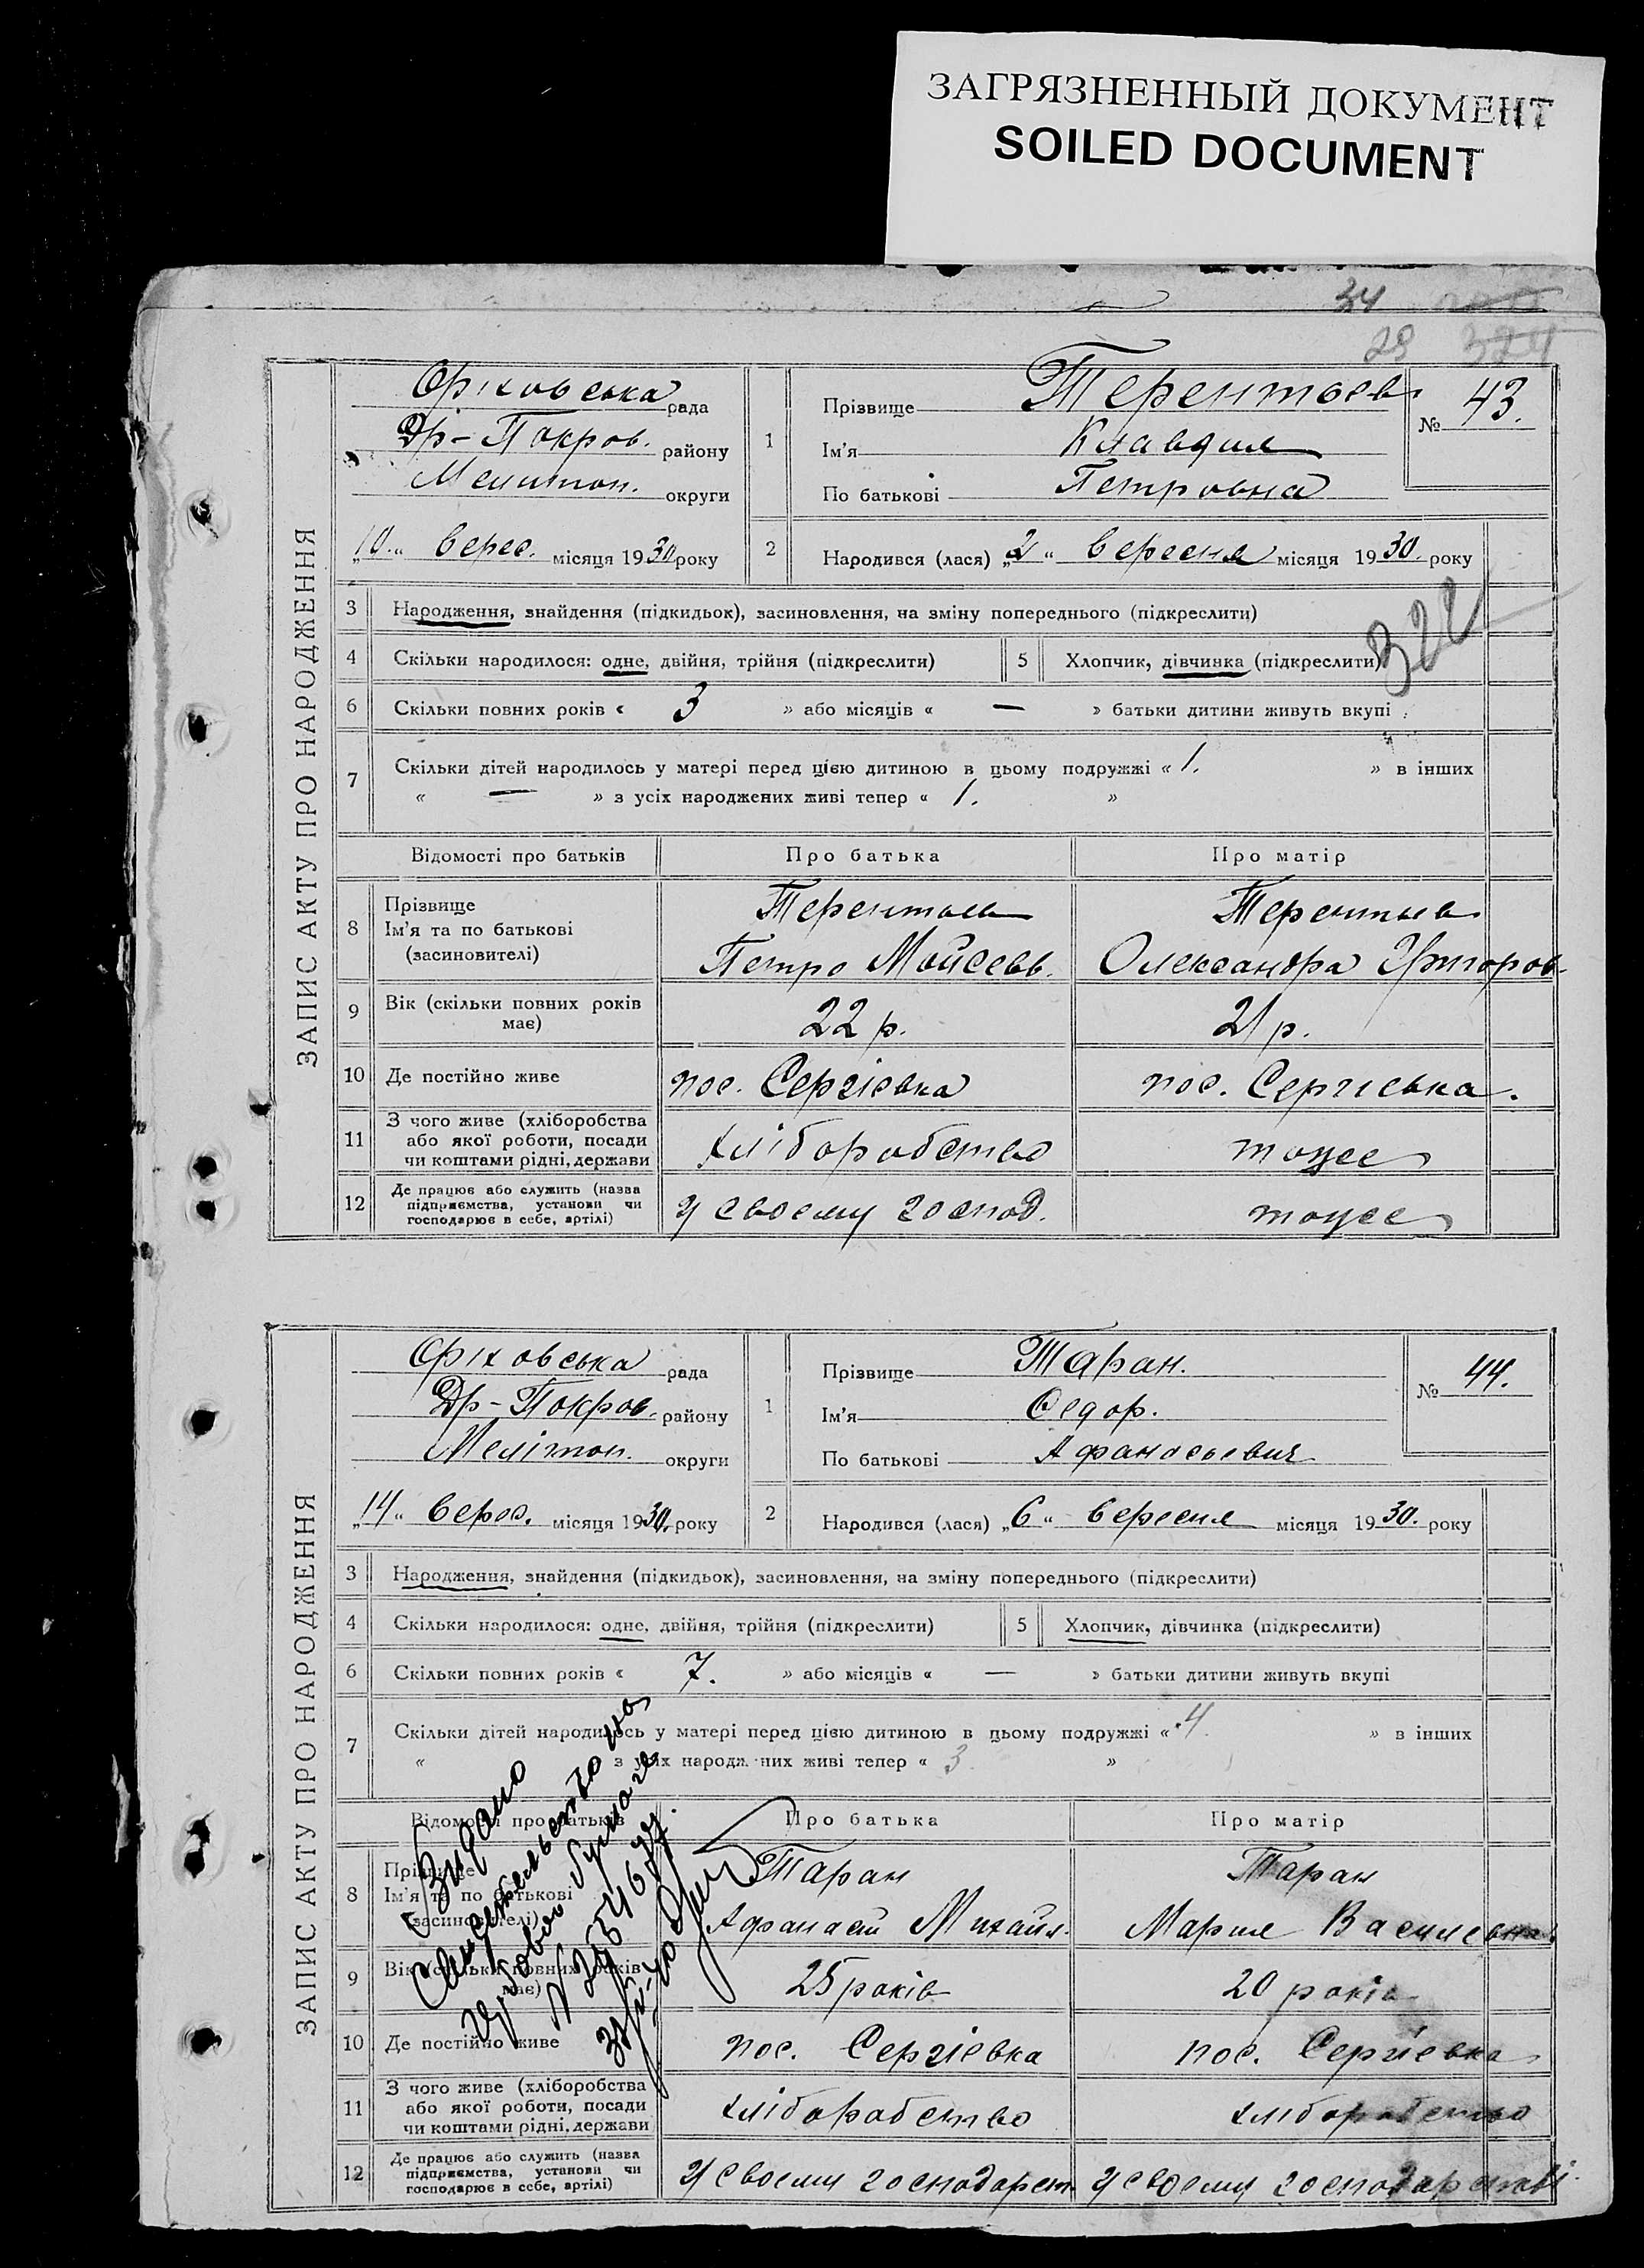 ЗАГРЯЗНЕННЫЙ ДОКУМЕНТ
SOILED DOCUMENT
34
28 324
ЗАПИС АКТУ ПРО НАРОДЖЕННЯ
Оріховська рада
Др-Покров. району
Мелитоп. округи
„10“ верес. місяця 1930 року
1 Прізвище Терентьев
Ім'я Клавдия
По батькові Петровна
№ 43.
2 Народився (лася) „2“ вересня місяця 1930. року
3 Народження, знайдення (підкидьок), засиновлення, на зміну попереднього (підкреслити)
322
4 Скільки народилося: одне, двійня, трійня (підкреслити) 5 Хлопчик, дівчинка (підкреслити)
6 Скільки повних років « 3 » або місяців « — » батьки дитини живуть вкупі
7 Скільки дітей народилось у матері перед цією дитиною в цьому подружжі « 1. » в інших
« — » з усіх народжених живі тепер « 1. »
Відомості про батьків Про батька Про матір
8 Прізвище Терентьев Терентьев
Ім'я та по батькові
(засновителі) Петро Мойсеев. Олександра Григоров.
9 Вік (скільки повних років має) 22 р. 21 р.
10 Де постійно живе пос. Сергієвка пос. Сергиевка.
11 З чого живе (хліборобства
або якої роботи, посади
чи коштами рідні, держави хліборобство тоже
12 Де працює або служить (назва
підприємства, установи чи
господарює в себе, артілі) у своему господ. тоже
ЗАПИС АКТУ ПРО НАРОДЖЕННЯ
Оріховська рада
Др-Покров. району
Мелітоп. округи
„14“ верес. місяця 1930. року
1 Прізвище Таран.
Ім'я Федор.
По батькові Афанасьевич
№ 44.
2 Народився (лася) „6“ вересня місяця 1930. року
3 Народження, знайдення (підкидьок), засиновлення, на зміну попереднього (підкреслити)
4 Скільки народилося: одне, двійня, трійня (підкреслити) 5 Хлопчик, дівчинка (підкреслити)
6 Скільки повних років « 7. » або місяців « — » батьки дитини живуть вкупі
7 Скільки дітей народилось у матері перед цією дитиною в цьому подружжі « 4 » в інших
« з усіх народжених живі тепер « 3 »
Відомості про батьків Про батька Про матір
8 Прізвище Таран Таран
Ім'я та по батькові
(засновителі) Афанасій Михайл. Мария Василевна
9 Вік (скільки повних років має) 25 років 20 років
10 Де постійно живе пос. Сергієвка пос. Сергіевка
11 З чого живе (хліборобства
або якої роботи, посади
чи коштами рідні, держави хліборобство хліборобство
12 Де працює або служить (назва
підприємства, установи чи
господарює в себе, артілі) у своему господарст. у своему господарстві.
Видано
свидетельство на
бумаге